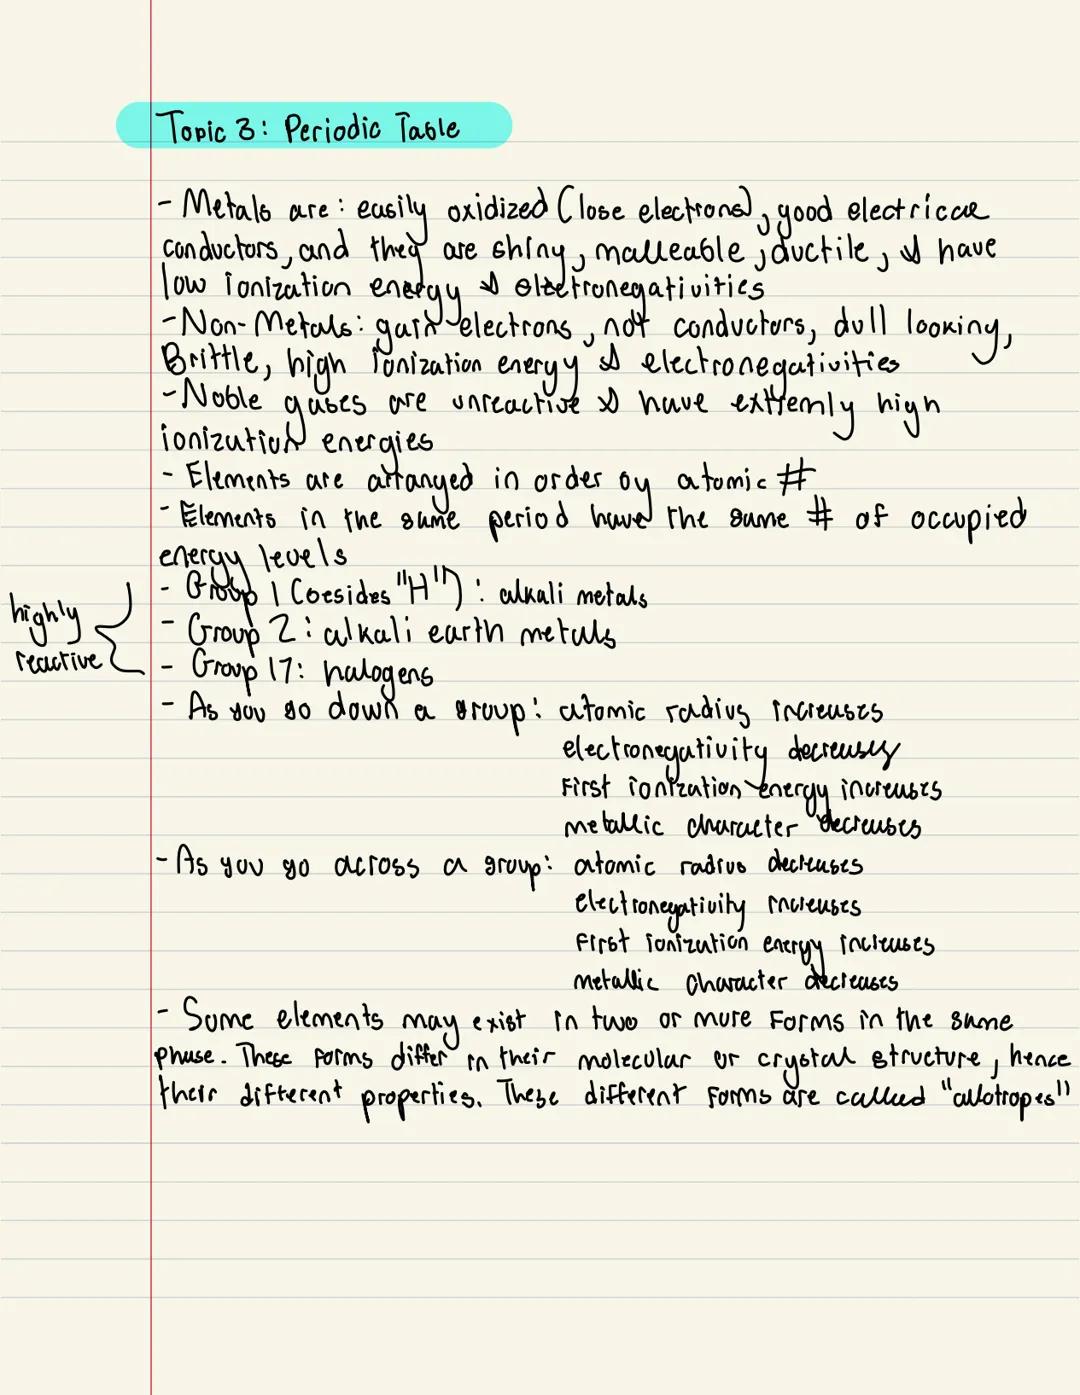 Topic 3: Periodic Table
- Metals are: easily oxidized (lose electrons), good electrical
conductors, and they are shiny, malleable, ductile, & have
low ionization energy & electronegativities
- Non-Metals: gain electrons, not conductors, dull looking,
Brittle, high ionization energy & electronegativities
- Noble gases are unreactive & have extremly high
ionization energies
- Elements are arranged in order by atomic #
- Elements in the same period have the same # of occupied
energy levels
- Group 1 (besides "H"): alkali metals
highly
- Group 2: alkali earth metals
reactive
- Group 17: halogens
- As you go down a group: atomic radius increases
electronegativity decreases
First ionization energy increases
metallic character decreases
- As you go across a group: atomic radius decreases
electronegativity increases
First ionization energy increases
metallic character decreases
- Some elements may exist in two or more forms in the same
phase. These forms differ in their molecular or crystal structure, hence
their different properties. These different forms are called "allotropes"